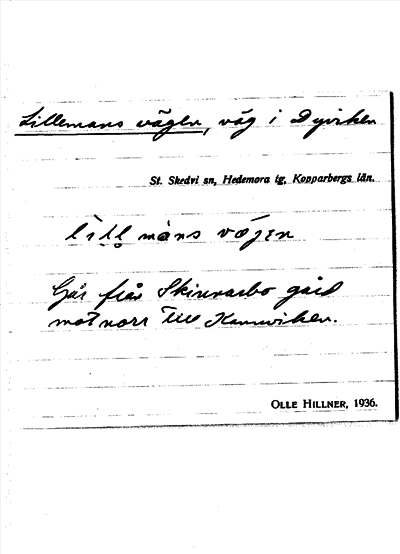 Lillemans vägen, väg i Dyviken
St. Skedvi sn, Hedemora tg, Kopparbergs län.
lillmäns vägen
Går från Skinnarbo gård
mot norr till Kannviken.
OLLE HILLNER, 1936.